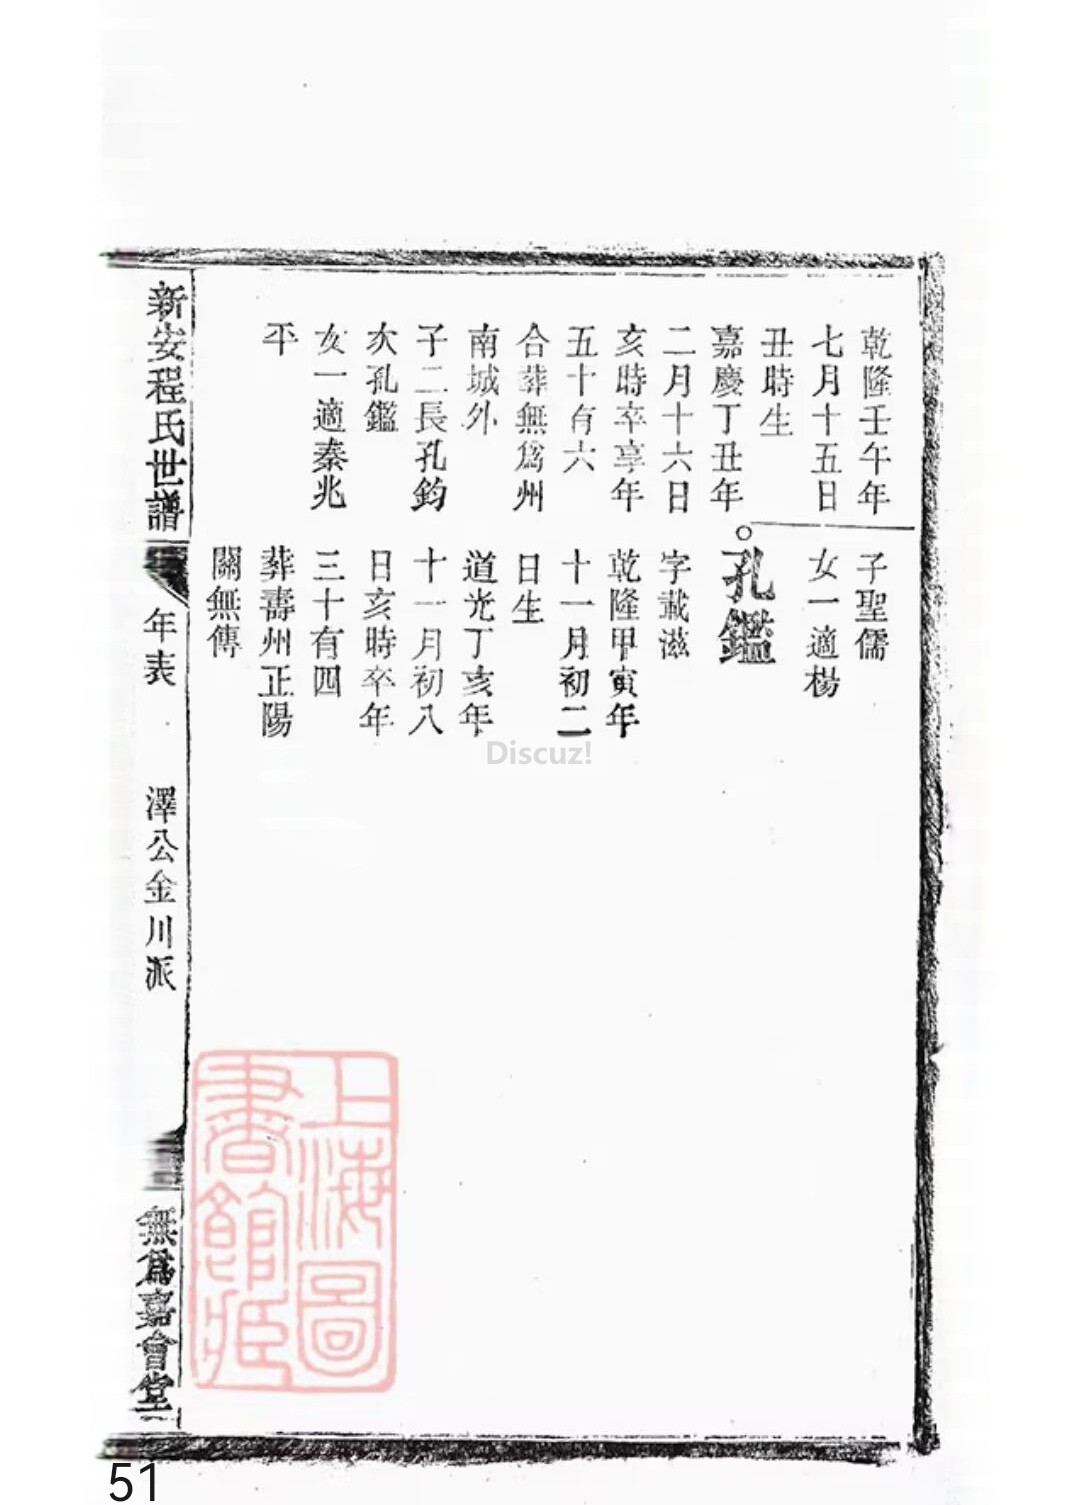 乾隆壬午年
七月十五日
丑時生
嘉慶丁丑年
二月十六日
亥時卒享年
五十有六
合葬無爲州
南城外
子二長孔鈞
次孔鑑
女一適秦兆
平
子聖儒
女一適楊
孔鑑
字載滋
乾隆甲寅年
十一月初二
日生
道光丁亥年
十一月初八
日亥時卒年
三十有四
葬壽州正陽
關無傳
新安程氏世譜
年表
澤公金川派
無爲嘉會堂
上海圖
書館藏
Discuz!
51